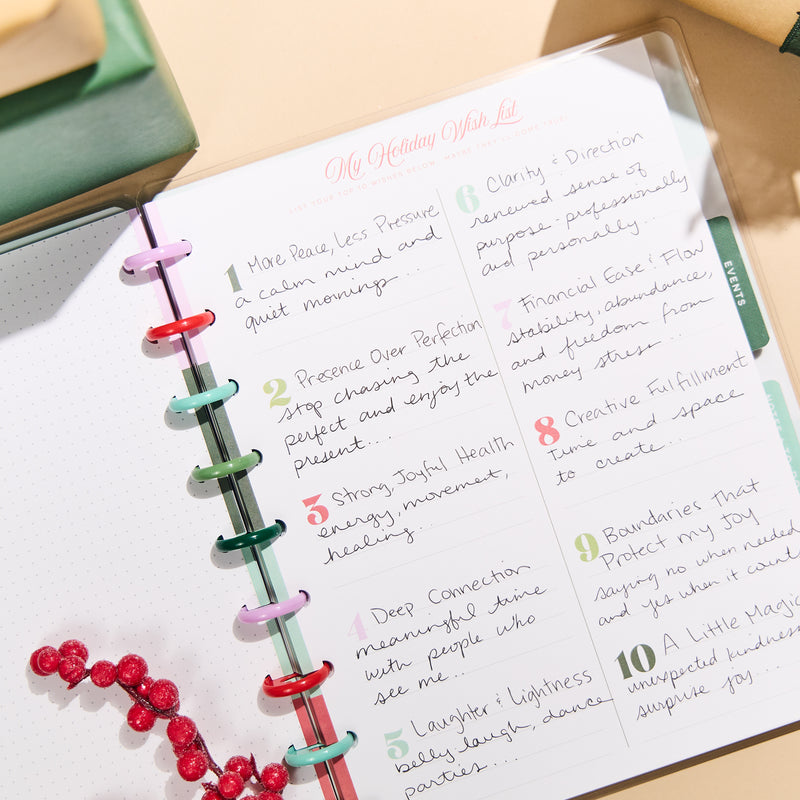 My Holiday Wish List
LIST YOUR TOP 10 WISHES BELOW. MAYBE THEY'LL COME TRUE!
1 More Peace, Less Pressure
a calm mind and
quiet mornings...
2 Presence Over Perfection
stop chasing the
perfect and enjoy the
present....
3 Strong, Joyful Health
energy, movement,
healing...
4 Deep Connection
meaningful time
with people who
see me...
5 Laughter & Lightness
belly laugh, dance
parties....
6 Clarity & Direction
renewed sense of
purpose - professionally
and personally...
7 Financial Ease & Flow
stability, abundance,
and freedom from
money stress...
8 Creative Fulfillment
time and space
to create...
9 Boundaries That
Protect my Joy
saying no when needed
and yes when it counts
10 A Little Magic
unexpected kindness
surprise joy....
EVENTS